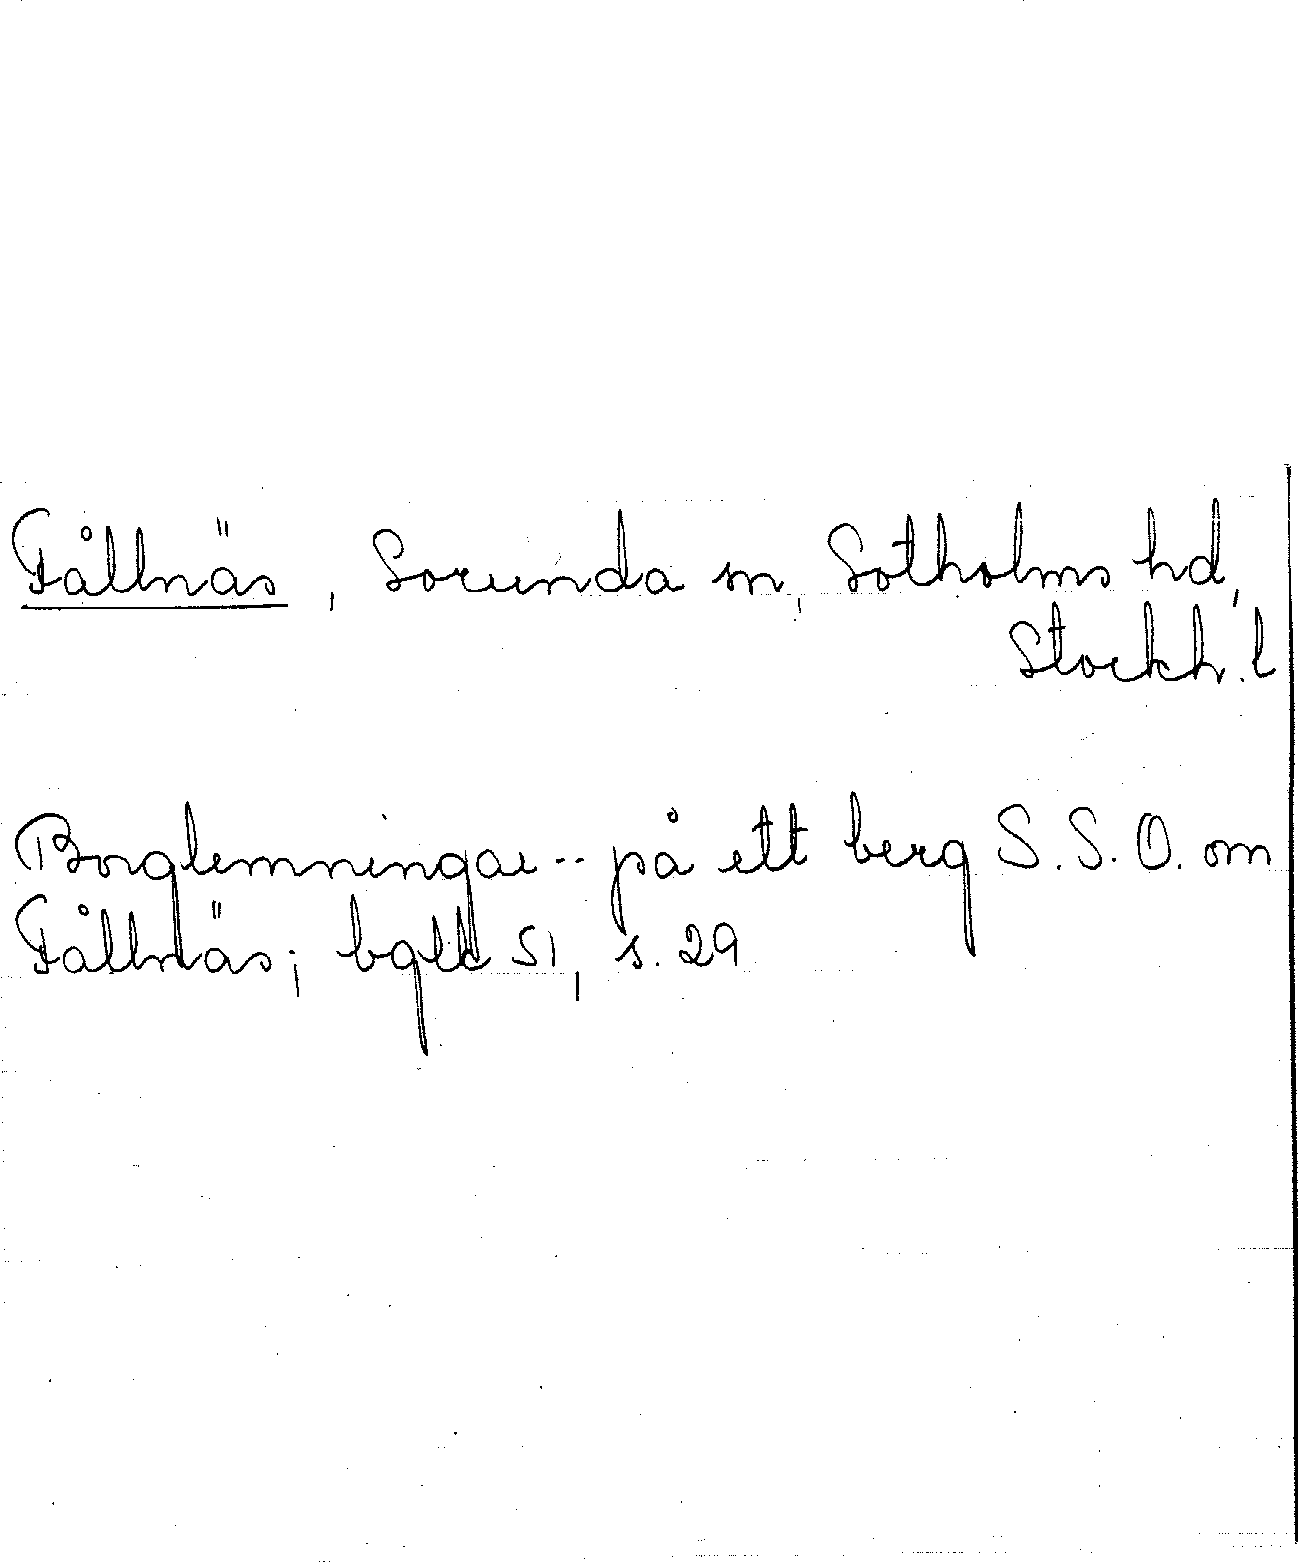 Fållnäs, Sorunda sn, Sotholms hd,
Stockh. l
Borglemningar -- på ett berg S. S. O. om
Fållnäs; bgbl 51, s. 29